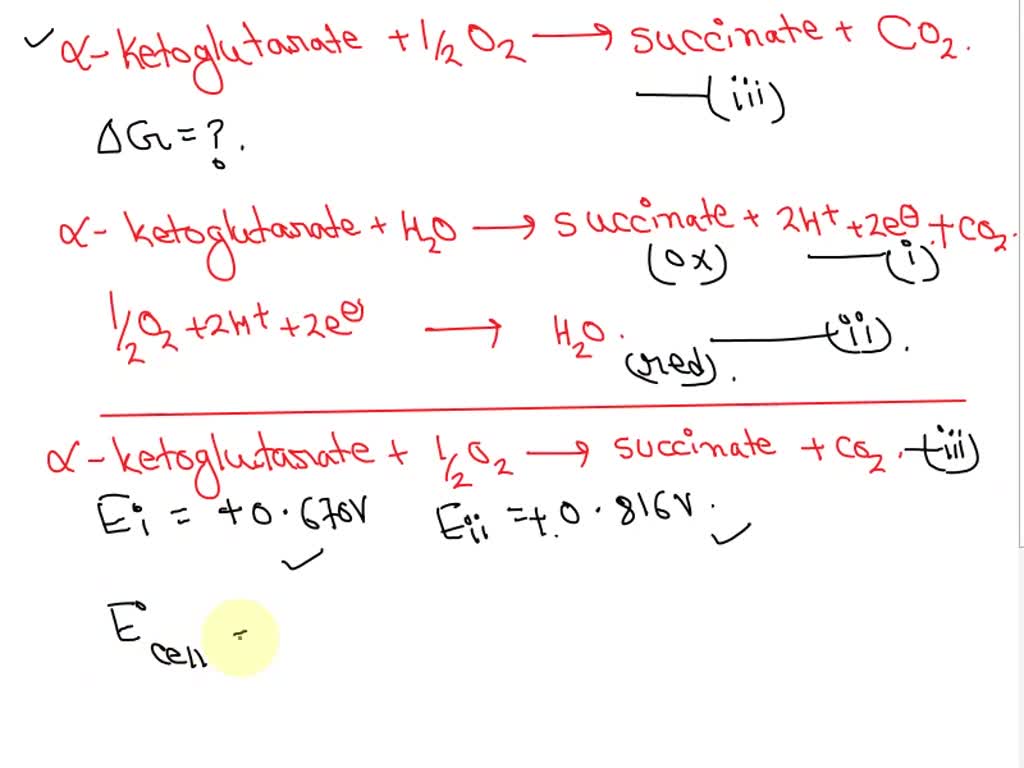 α-ketoglutarate + 1/2 O2 → succinate + CO2.
—(iii)
ΔG = ?.
α- ketoglutarate + H2O → succinate + 2H+ + 2e⊖ + CO2.
(ox) —(i)
1/2 O2 + 2H+ + 2e⊖ → H2O.
(red). —(ii).
α-ketoglutarate + 1/2 O2 → succinate + CO2. —(iii)
E°i = +0.670V E°ii = +0.816V.
E°cell =